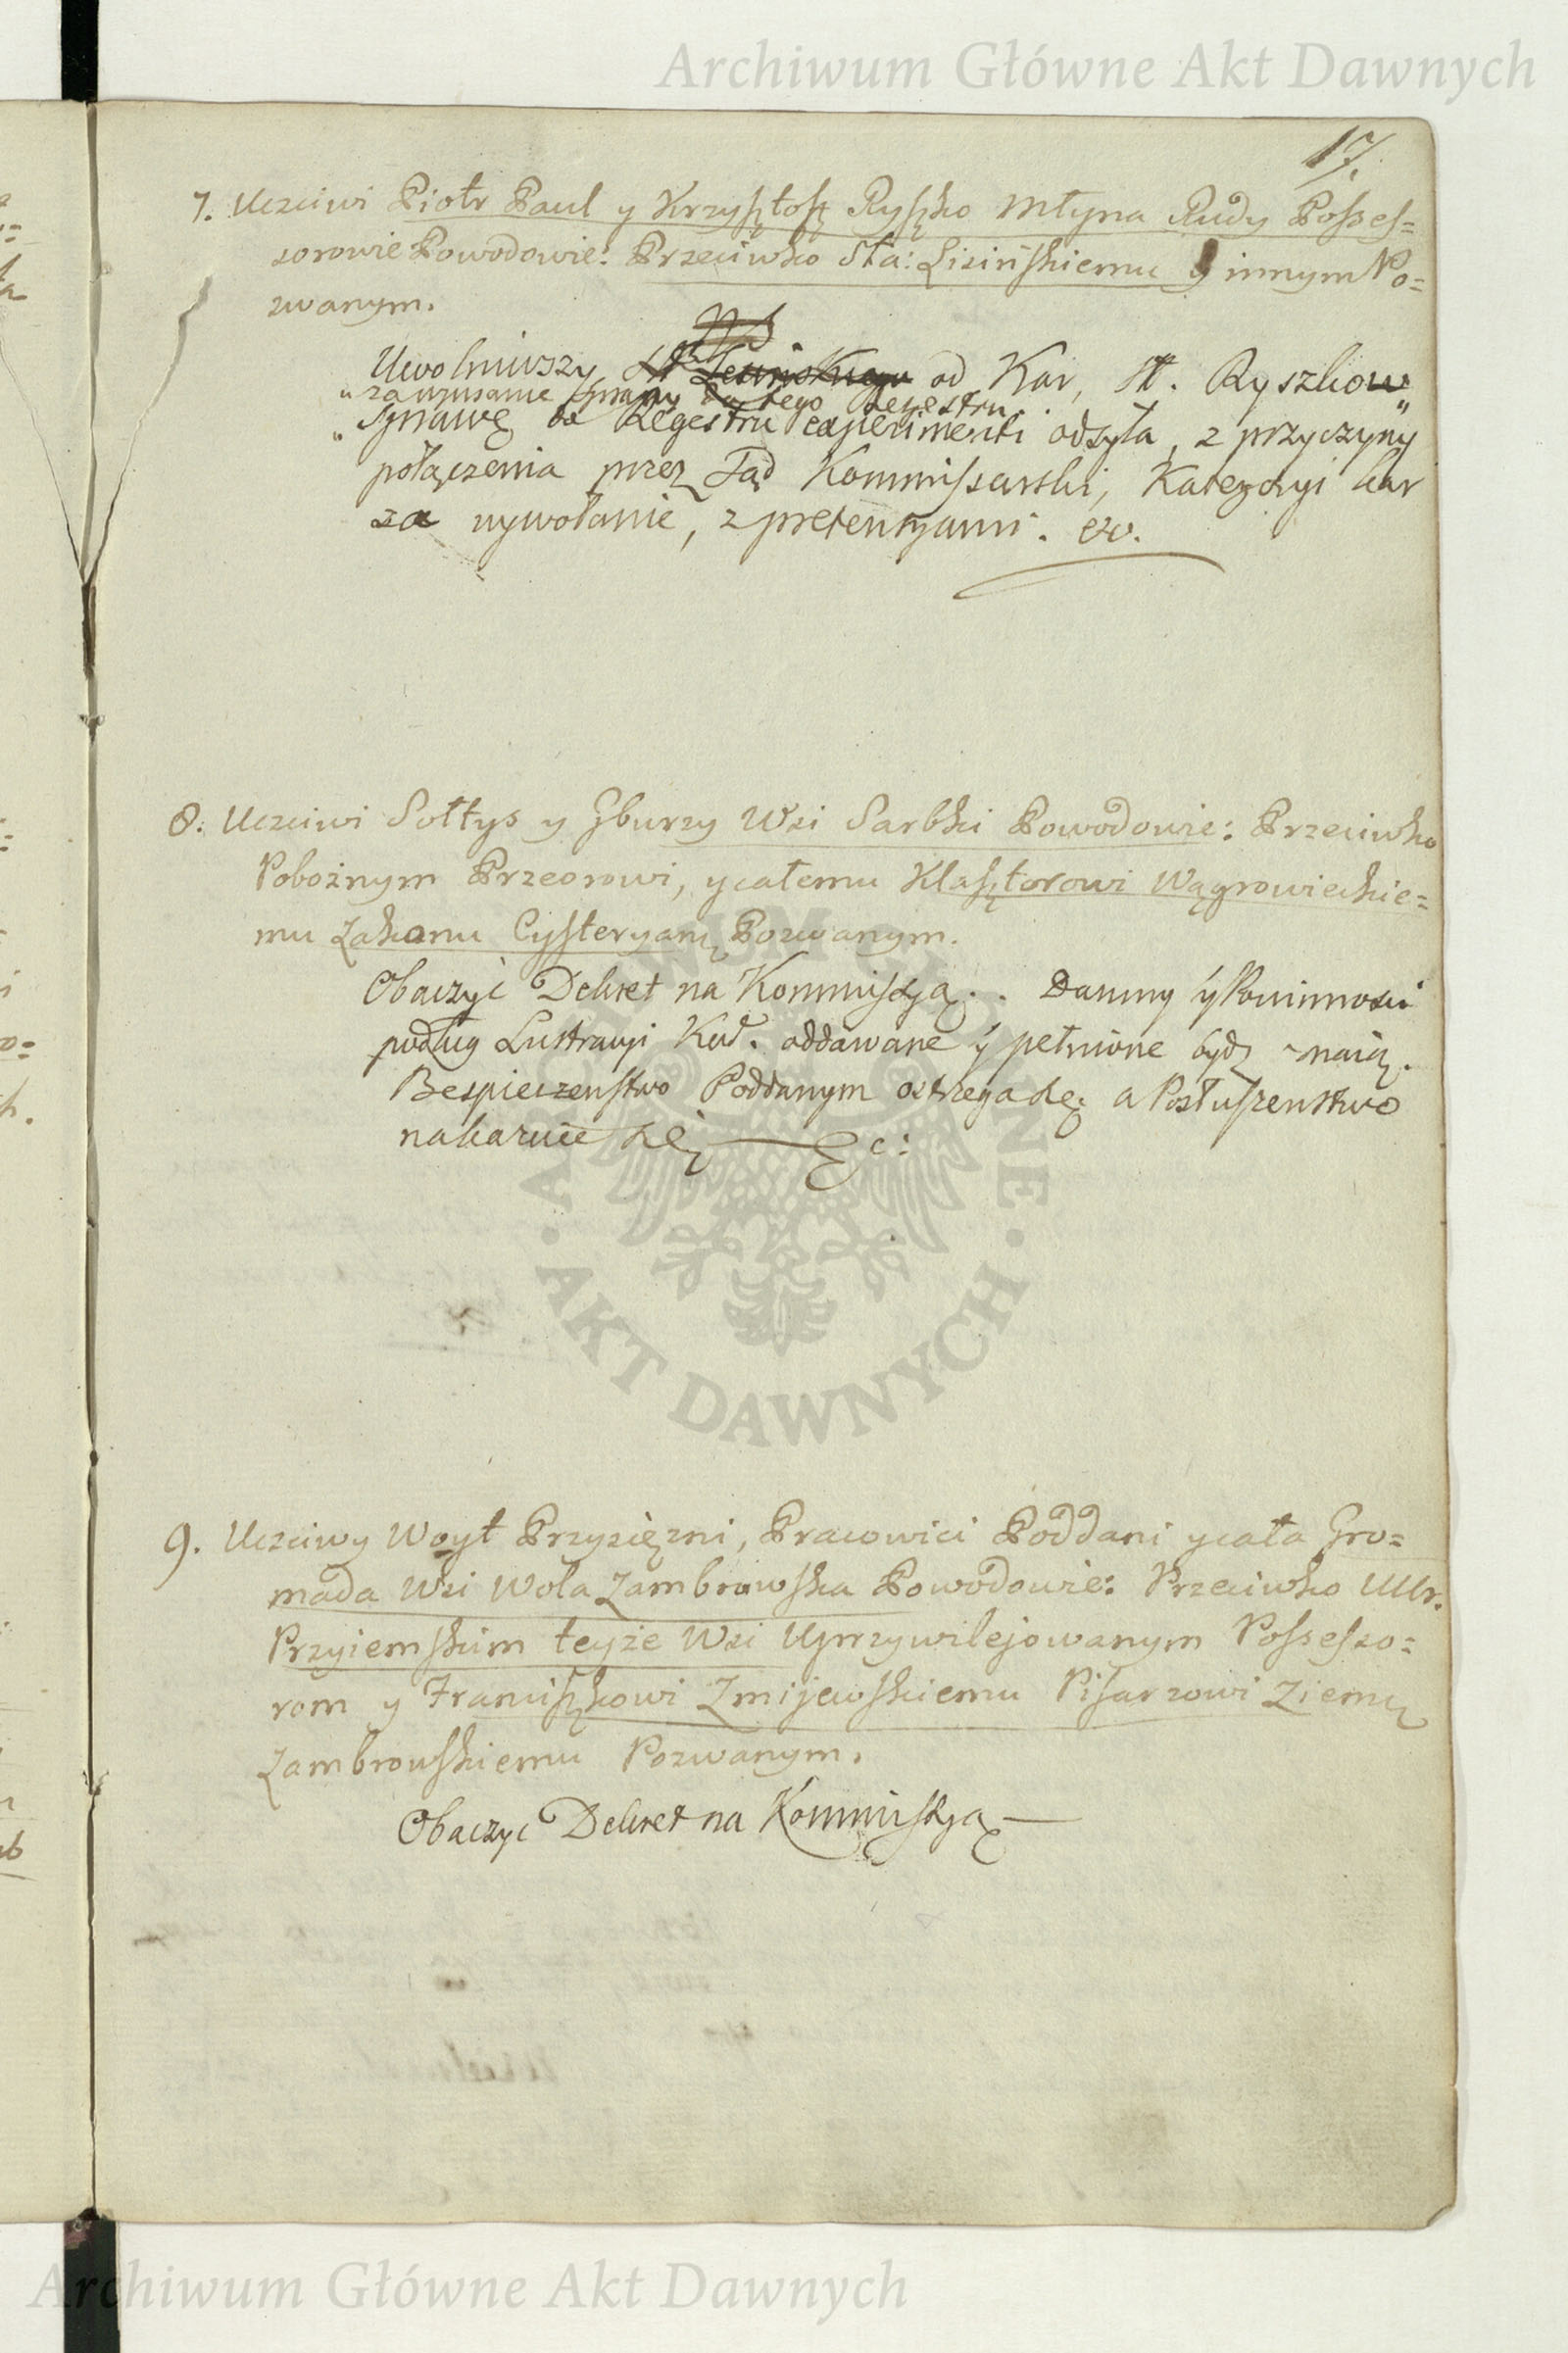 Archiwum Główne Akt Dawnych
17.
7. Uczciwi Piotr Paul y Krzysztof Ryszko Młyna Rudy Posses=
sorowie Powodowie: Przeciwko Sta: Lisińskiemu y innym Po=
zwanym.
Uwolniwszy od Kar, St. Ryszkow
„za wpisanie sprawy do tego Regestru
„Sprawę do Regestru experimenti odsyła, z przyczyny
połączenia przez Sąd Kommissarski, Kategoryi kar
za wywołanie, z pretensyami. etc.
8. Uczciwi Sołtys y Gburzy Wsi Sarbki Powodowie: Przeciwko
Pobożnym Przeorowi, y całemu Klasztorowi Wągrowieckie=
mu Zakonu Cysteryan Pozwanym.
Obaczyć Dekret na Kommissyą. . Daniny ÿ Powinności
podług Lustracyi Kod. oddawane ÿ pełnione bydz maią.
Bespieczenstwo Poddanym ostrzega się. a Posłuszenstwo
nakazuie się &c:
9. Uczciwy Woyt Przysiężni, Pracowici Poddani y cała Gro=
mada Wsi Wola Zambrowska Powodowie: Przeciwko Ur.
Przyiemskim teyże Wsi Uprzywilejowanym Possesso=
rom y Franciszkowi Zmijewskiemu Pisarzowi Ziem
Zambrowskiemu Pozwanym.
Obaczyc Dekret na Kommissyą
ARCHIWUM GŁÓWNE · AKT DAWNYCH ·
Archiwum Główne Akt Dawnych